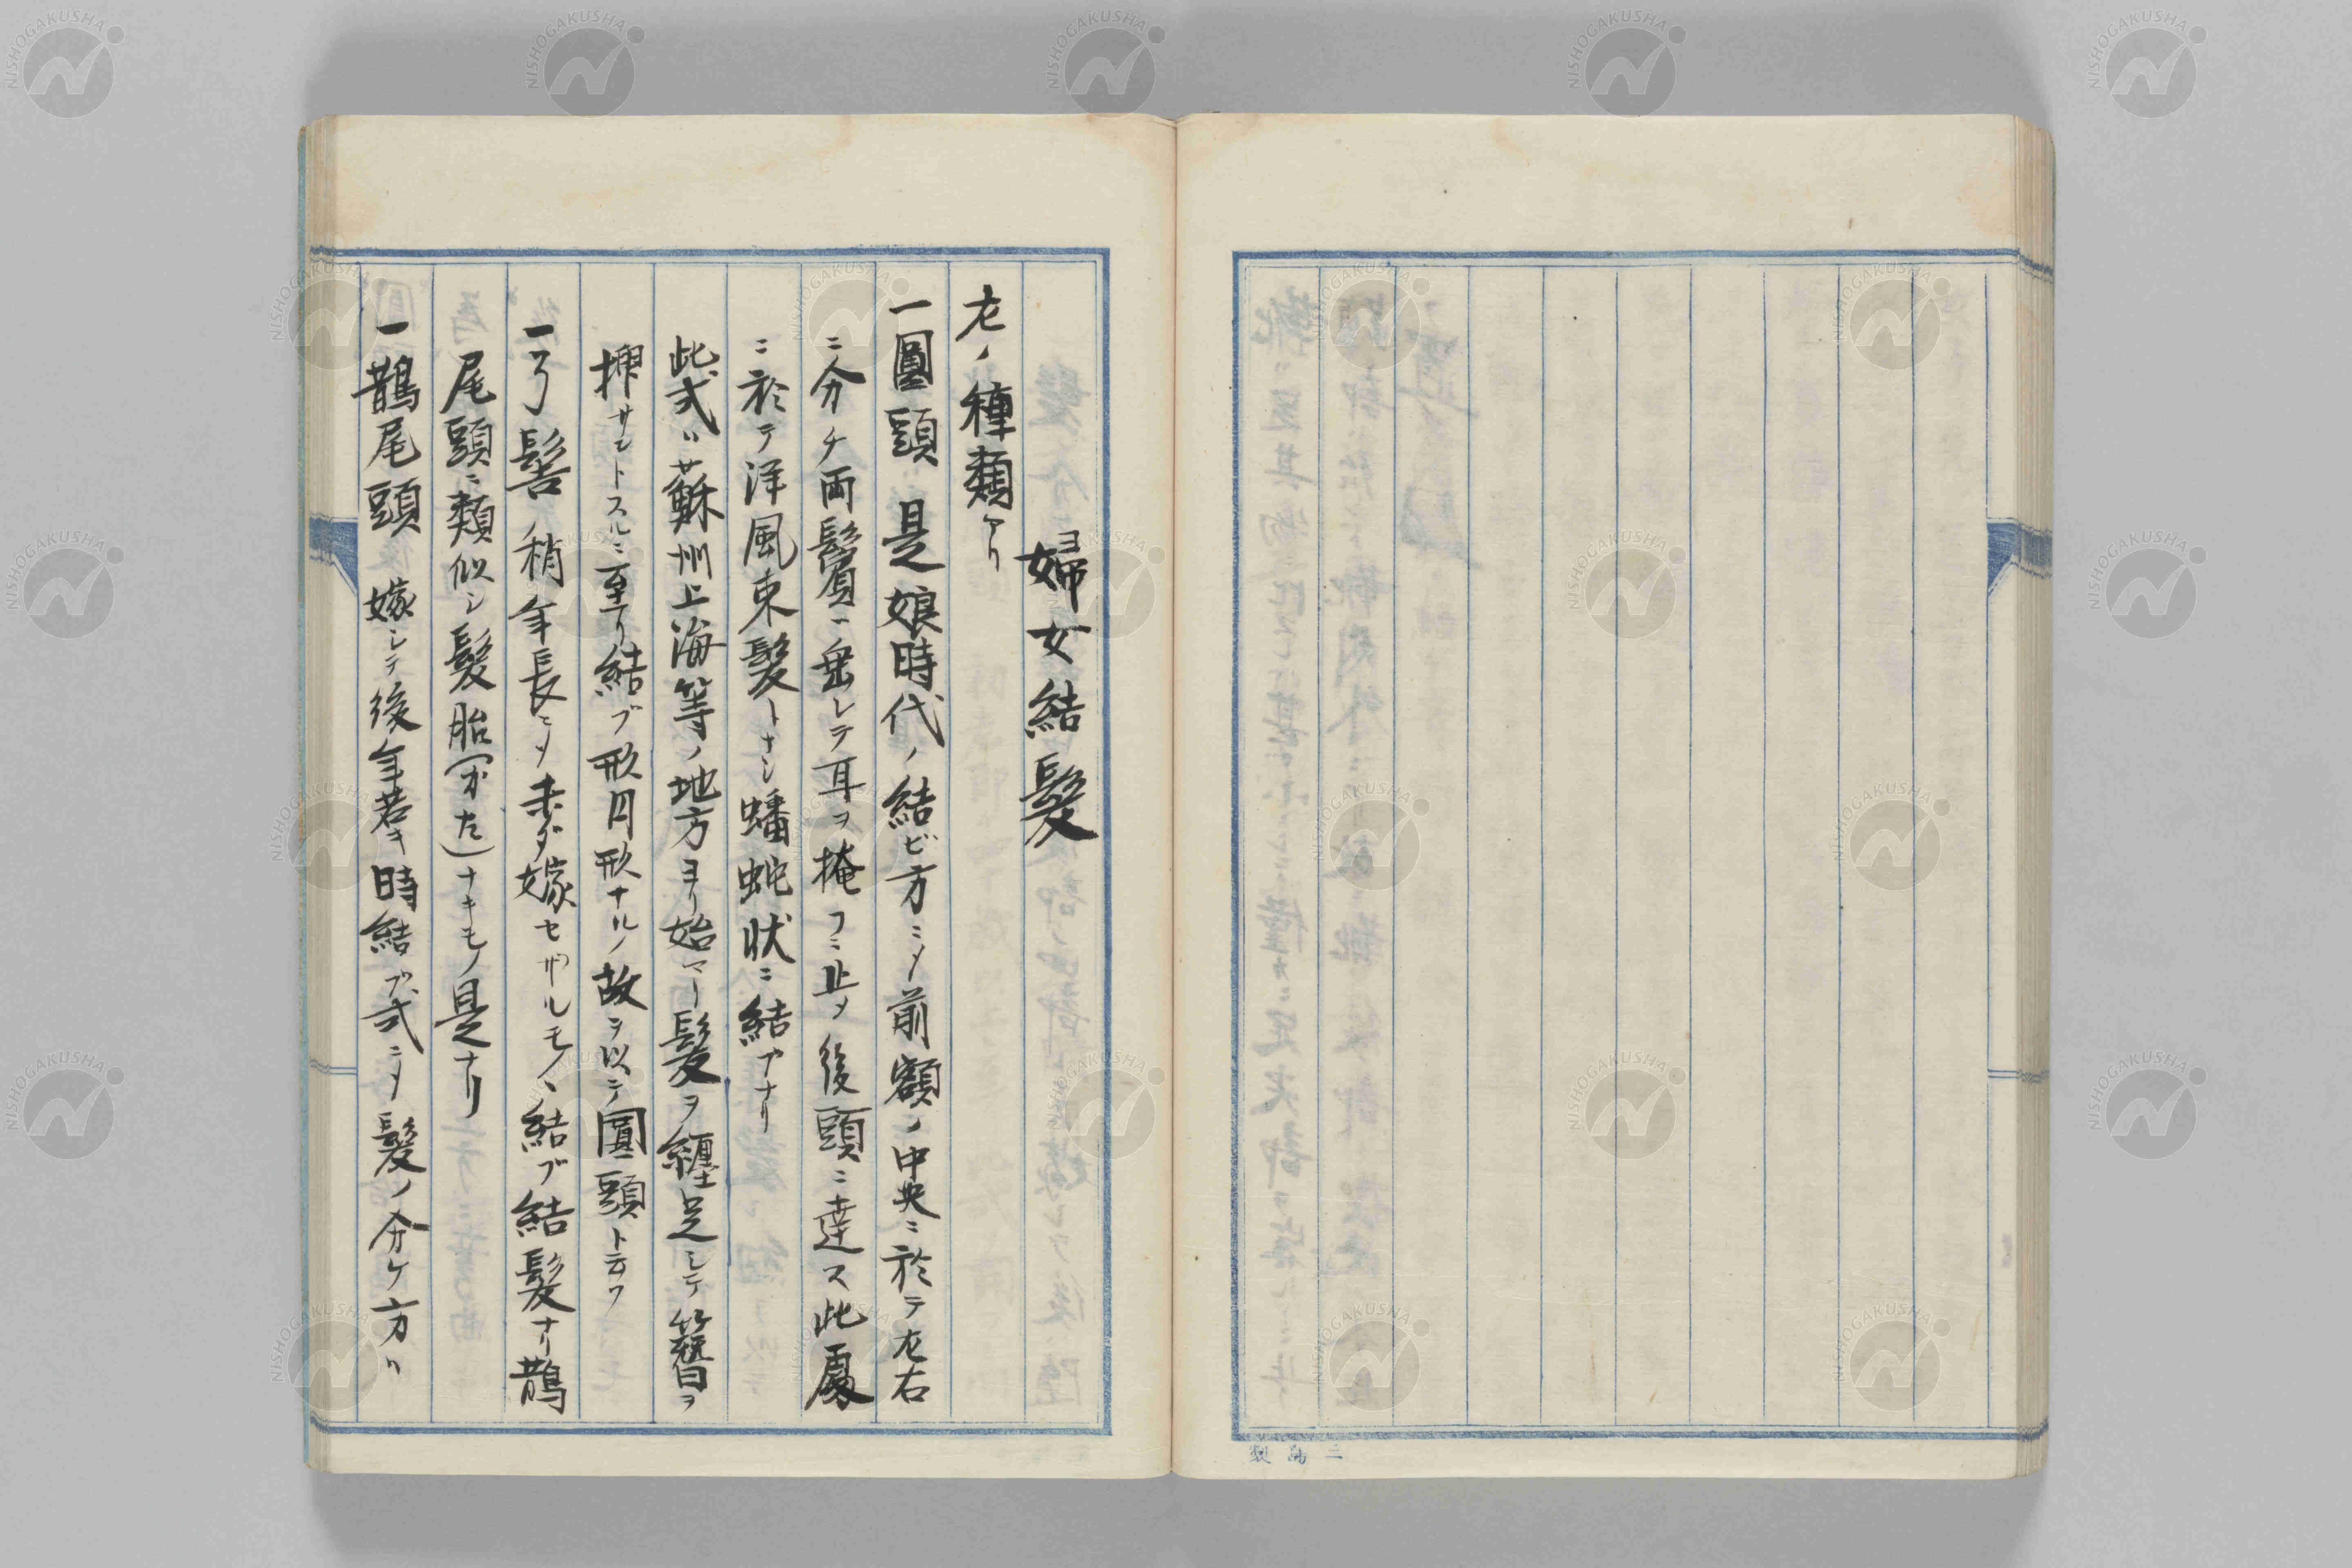 婦女結髪
左ノ種類アリ
一圓頭 是娘時代ノ結ビ方ニメ前額ノ中央ニ於テ左右
ニ分チ両鬢ニ垂レテ耳ヲ掩フニ止メ後頭ニ達ス此處
ニ於テ洋風束髪トナシ蟠蛇状ニ結ブナリ
此式ハ蘇州上海等ノ地方ヨリ始マリ髪ヲ纏足シテ簪ヲ
挿サントスルニ至リ結ブ形円形ナルノ故ヲ以テ圓頭ト云フ
一弓髻 稍年長ニメ未ダ嫁セザルモノヽ結ブ結髪ナリ鵲
尾頭ニ類似シ髪胎(かた)ナキモノ是ナリ
一鵲尾頭 嫁シテ後年若キ時結ブ式ニメ髪ノ分ケ方ハ
三島製
NISHOGAKUSHA